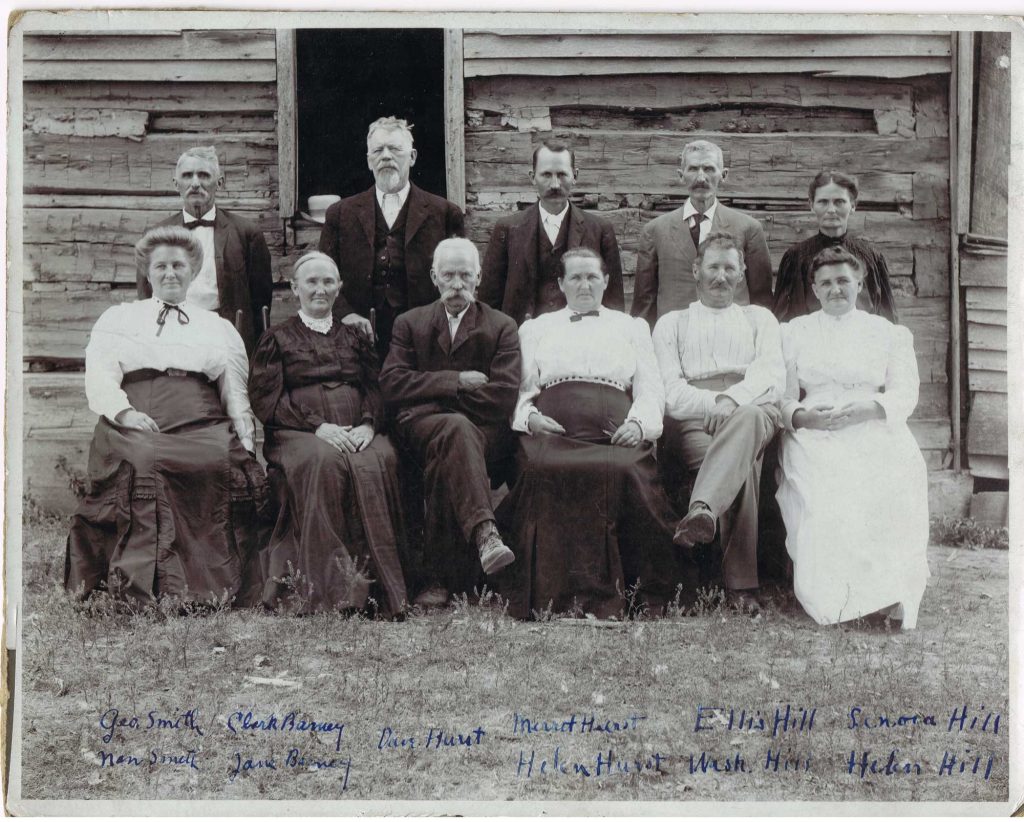 Geo. Smith Clark Barney Dave Hurst Merret Hurst Ellis Hill Senora Hill
Nan Smith Jane Barney Helen Hurst Wash. Hill Helen Hill